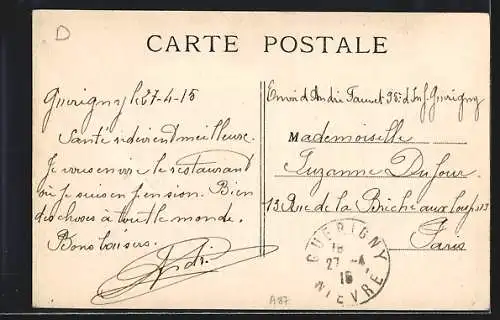 D
CARTE POSTALE
Guérigny le 27-4-15
Santé redevient meilleure.
Je vous envoie le restaurant
où je suis en pension. Bien
des choses à tout le monde.
Bons baisers.
André
Envoi d'André Faunet 95e d'Inf. Guérigny
Mademoiselle
Suzanne Dufour
13 Rue de la Brèche aux loups 13
Paris
GUERIGNY
16
27 -4
15
NIEVRE
A87